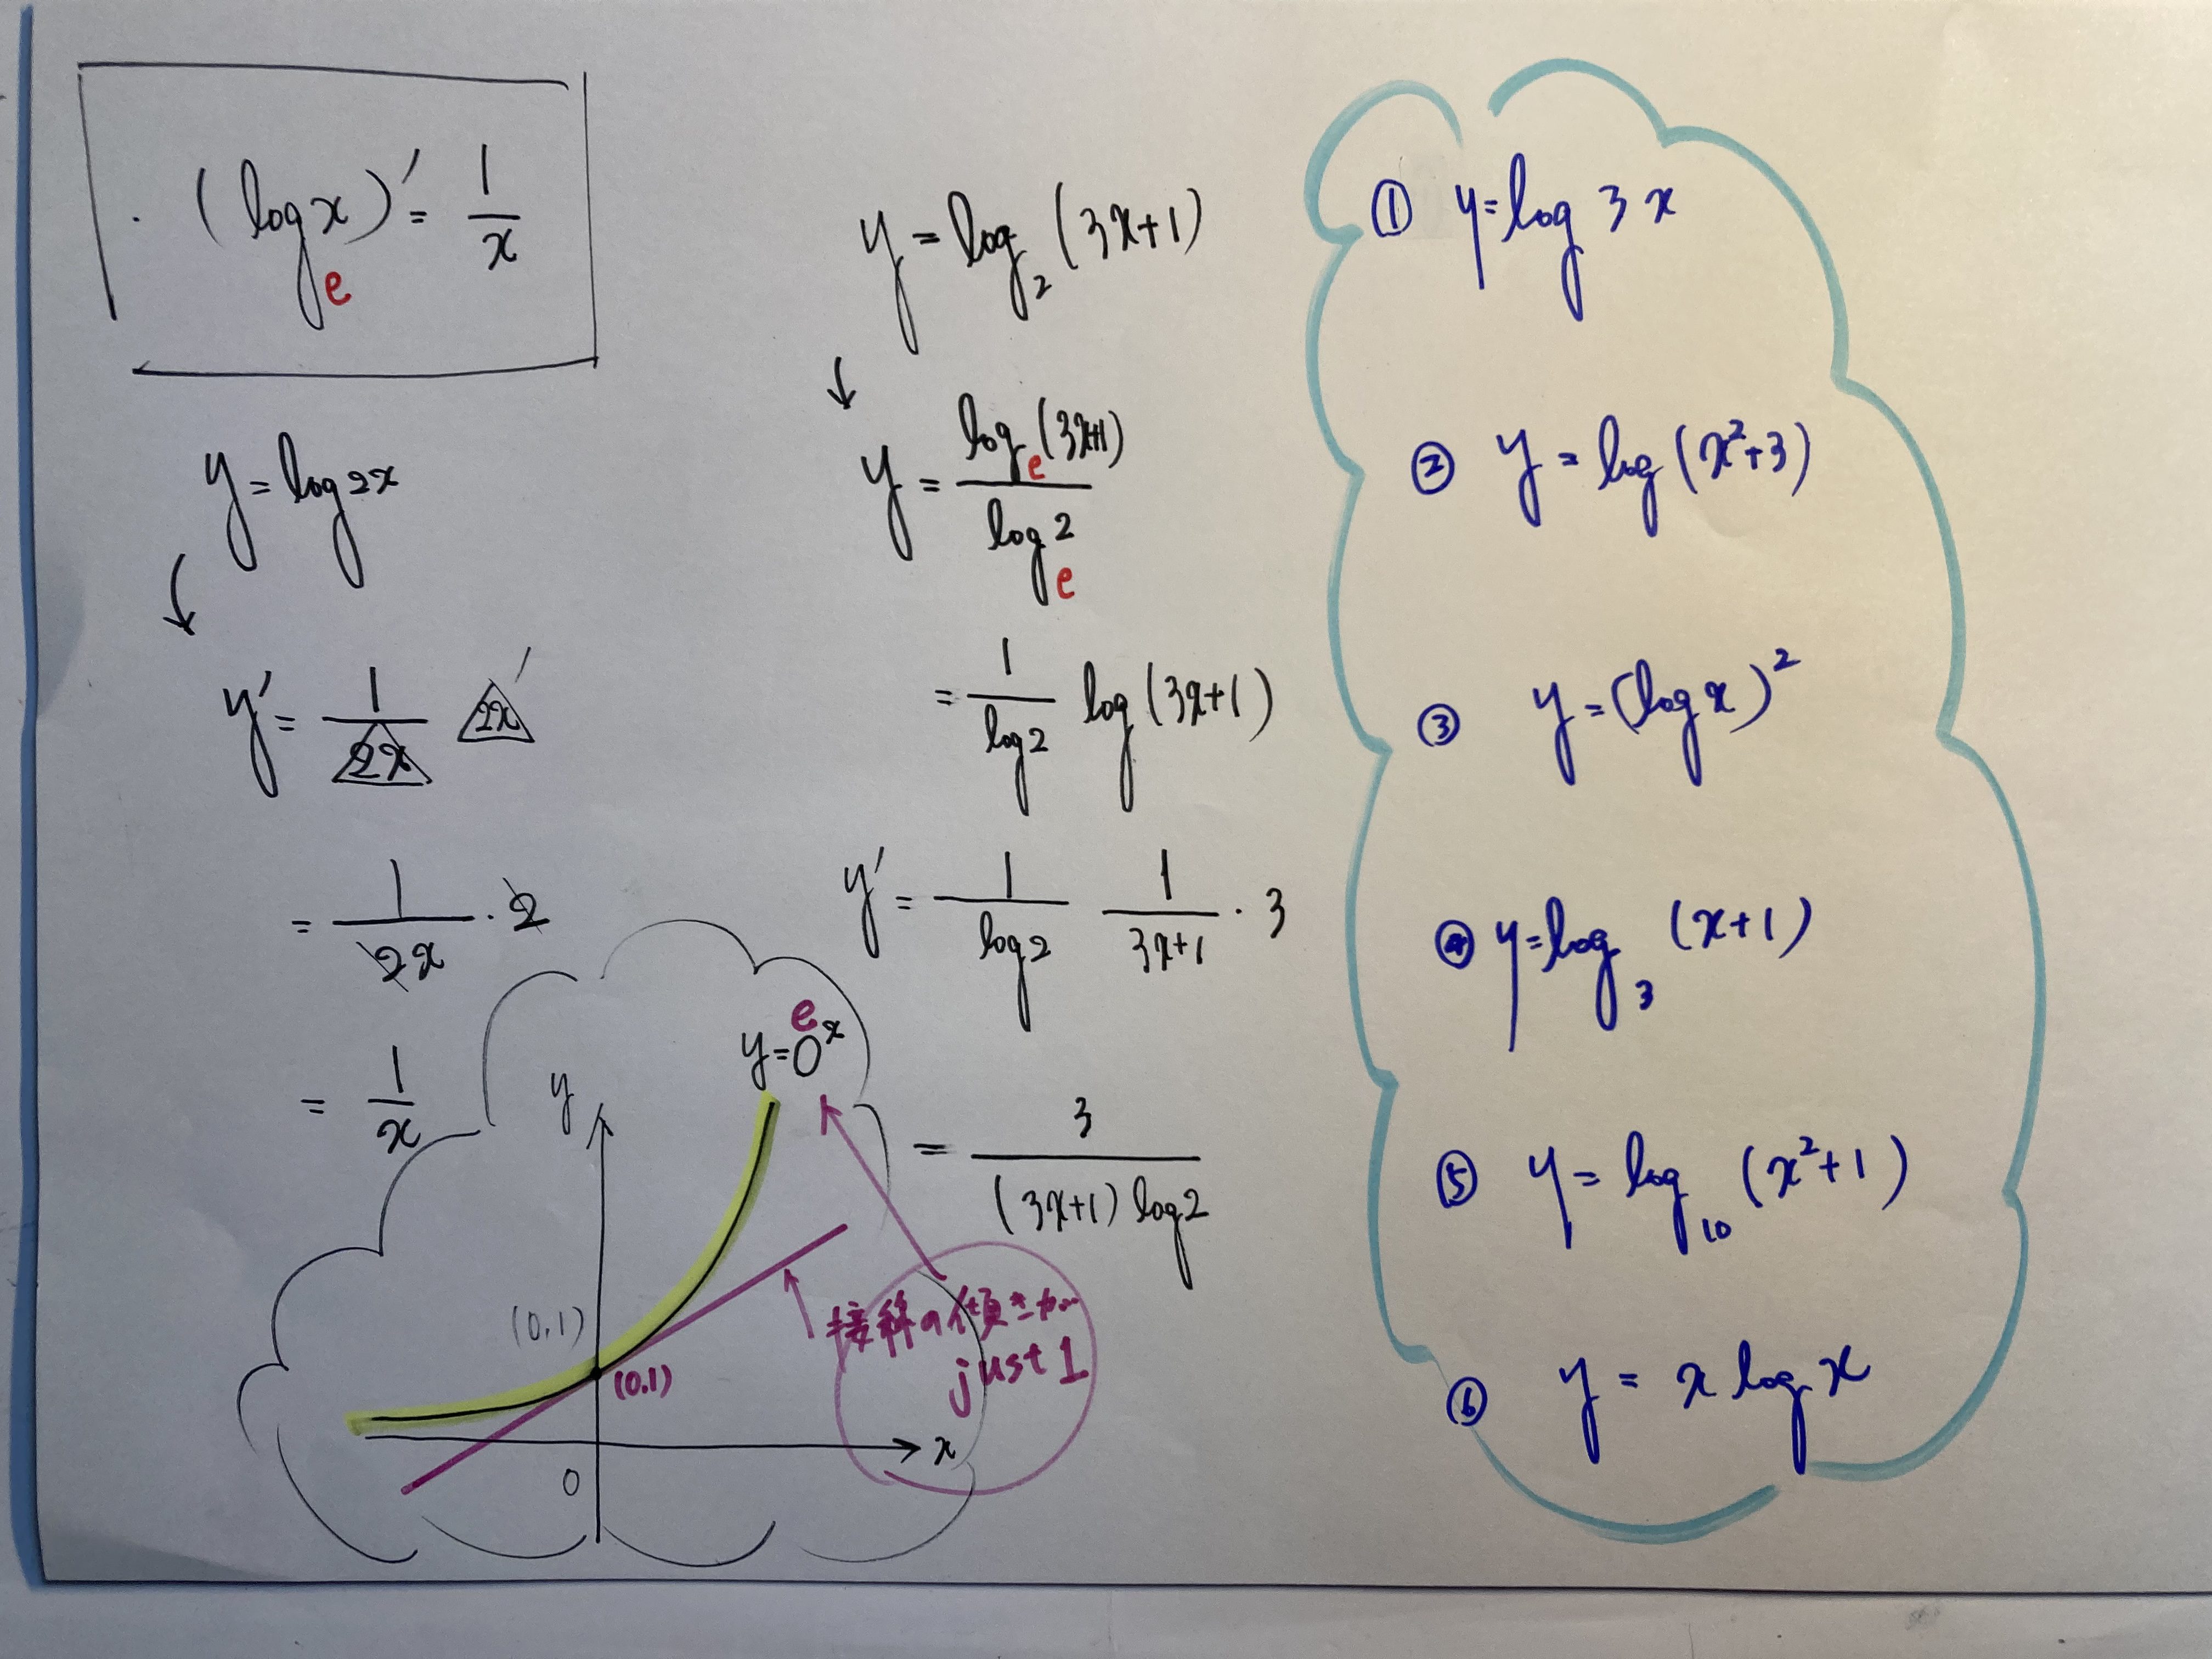 (log_e x)' = 1/x
y = log 2x
↓
y' = 1/(2x) (2x)'
= 1/(2x) · 2
= 1/x
y = log_2 (3x+1)
↓
y = log_e (3x+1) / log_e 2
= 1/(log 2) log (3x+1)
y' = 1/(log 2) 1/(3x+1) · 3
= 3/((3x+1) log 2)
e
y = O^x
y
(0,1)
(0,1)
接線の傾きが
just 1
x
O
① y = log 3x
② y = log (x²+3)
③ y = (log x)²
④ y = log_3 (x+1)
⑤ y = log_10 (x²+1)
⑥ y = x log x